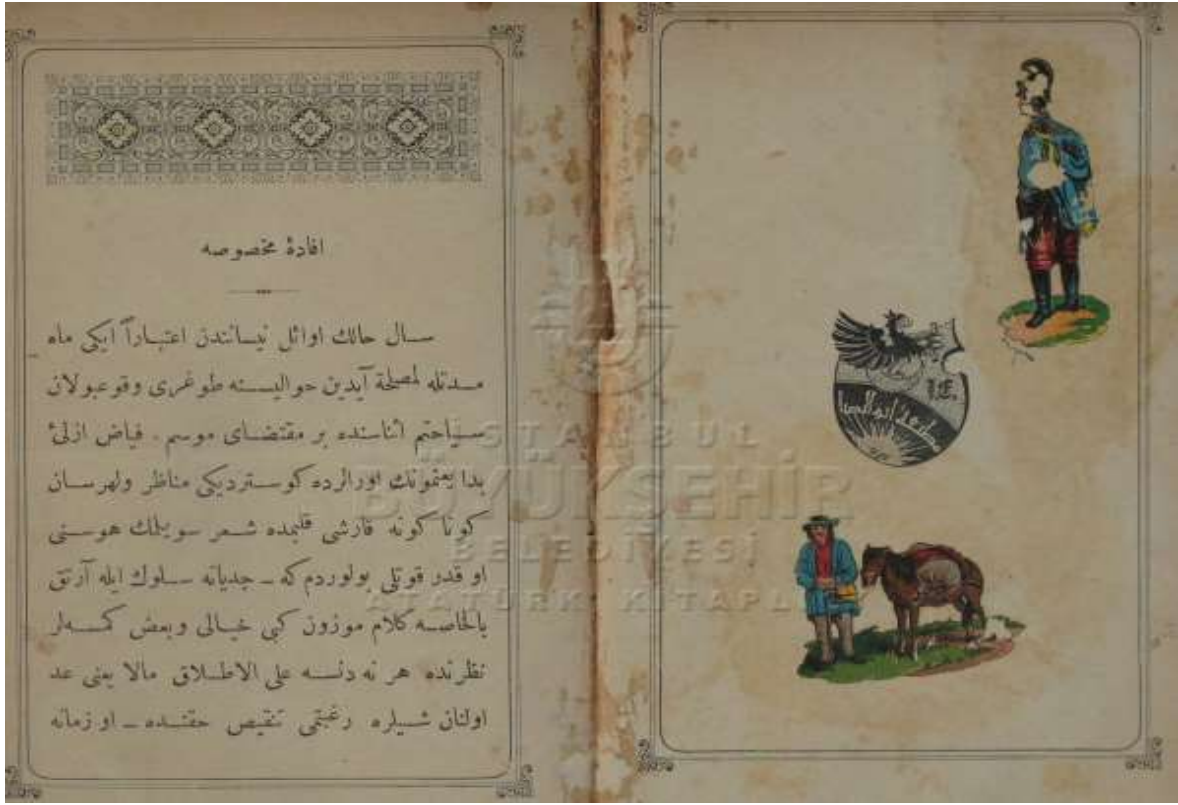 افادۀ مخصوصه
ســال حالك اوائل نیــانندن اعتبــاراً ایكی ماه
مــدتله لمصلحة آیدین حوالیســنه طوغری وقوعبولان
ســیاحتم اثناسنده بر مقتضــای موسم ، فیاض ازلیٔ
اورالرده كوســتردیكی مناظر ولهرســان
كونا كونه قارشی قلبمده شــعر سویلمك هوســنی
او قدر قوتلی بولوردم كه ـ جدیانه ســلوك ایله آرتق
بالخاصــه كلام موزون كبی خیــالی وبعض كمســه‌لر
نظرنده هر نه دنســه علی الاطــلاق مالا یعنی عد
اولنان شــیلره رغبتمی تنقیص حقنــده ـ او زمانه
ISTANBUL
BÜYÜKŞEHİR
BELEDİYESİ
ATATÜRK KİTAPLIĞI